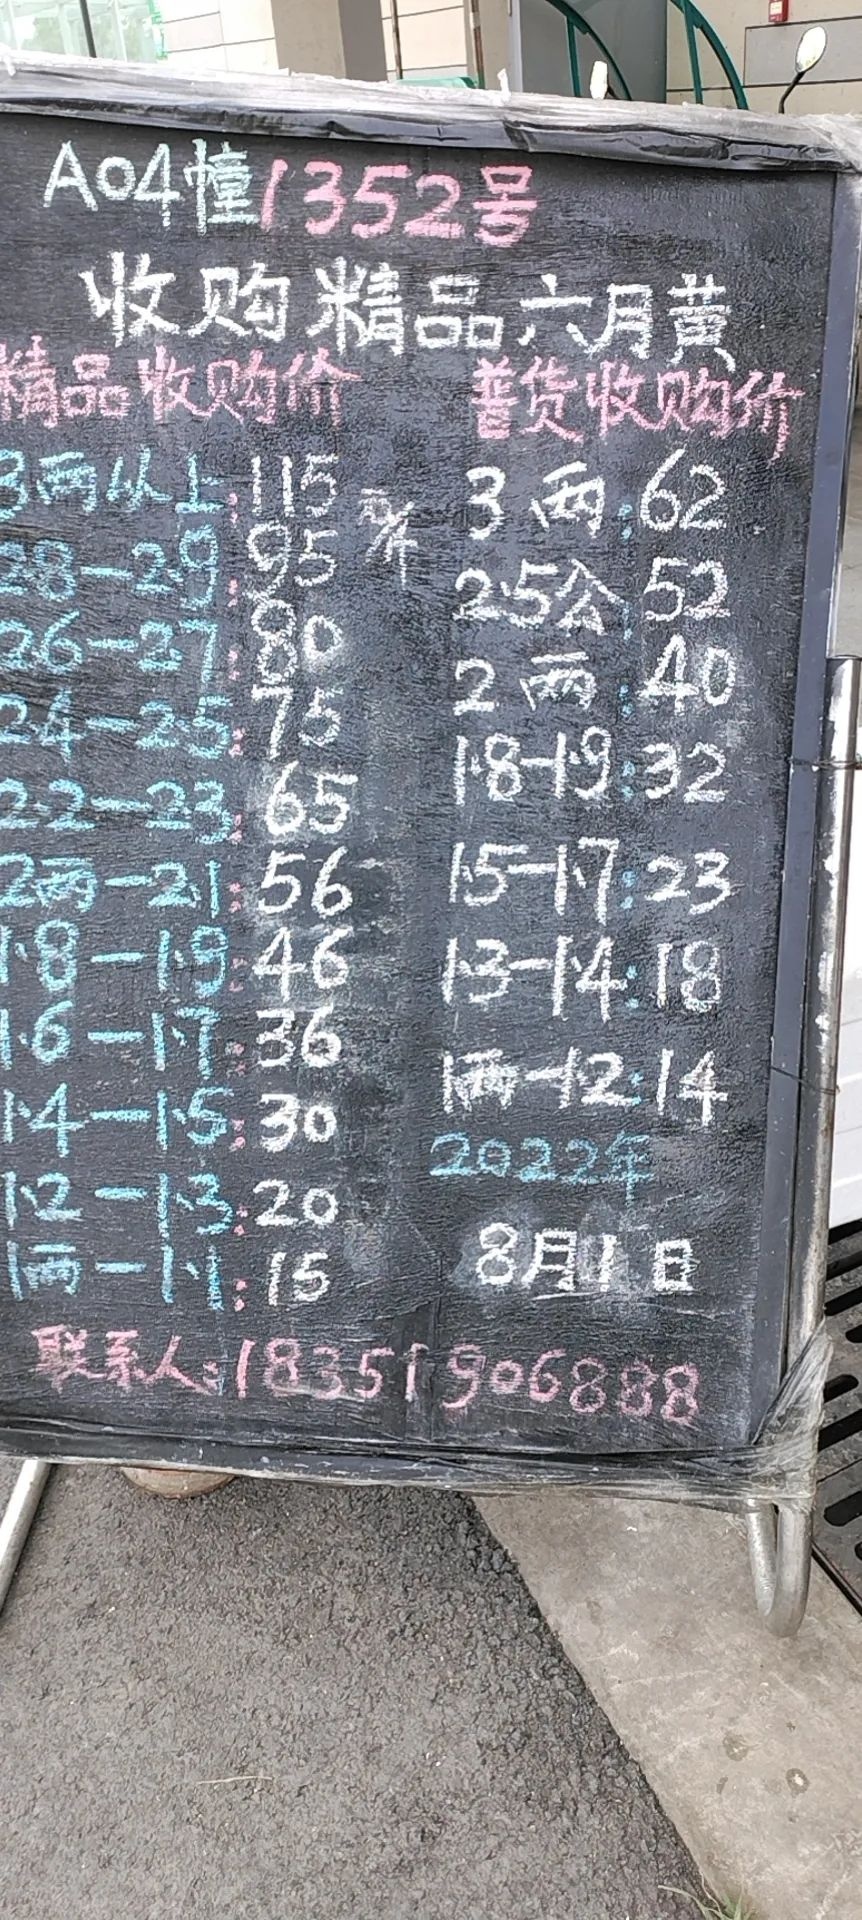 A04幢1352号
收购精品六月黄
精品收购价
3两以上:115
2.8-2.9:95
2.6-2.7:80
2.4-2.5:75
2.2-2.3:65
2两-2.1:56
1.8-1.9:46
1.6-1.7:36
1.4-1.5:30
1.2-1.3:20
1两-1.1:15
普货收购价
3两:62
2.5公:52
2两:40
1.8-1.9:32
1.5-1.7:23
1.3-1.4:18
1两-1.2:14
2022年
8月1日
联系人:18351906888